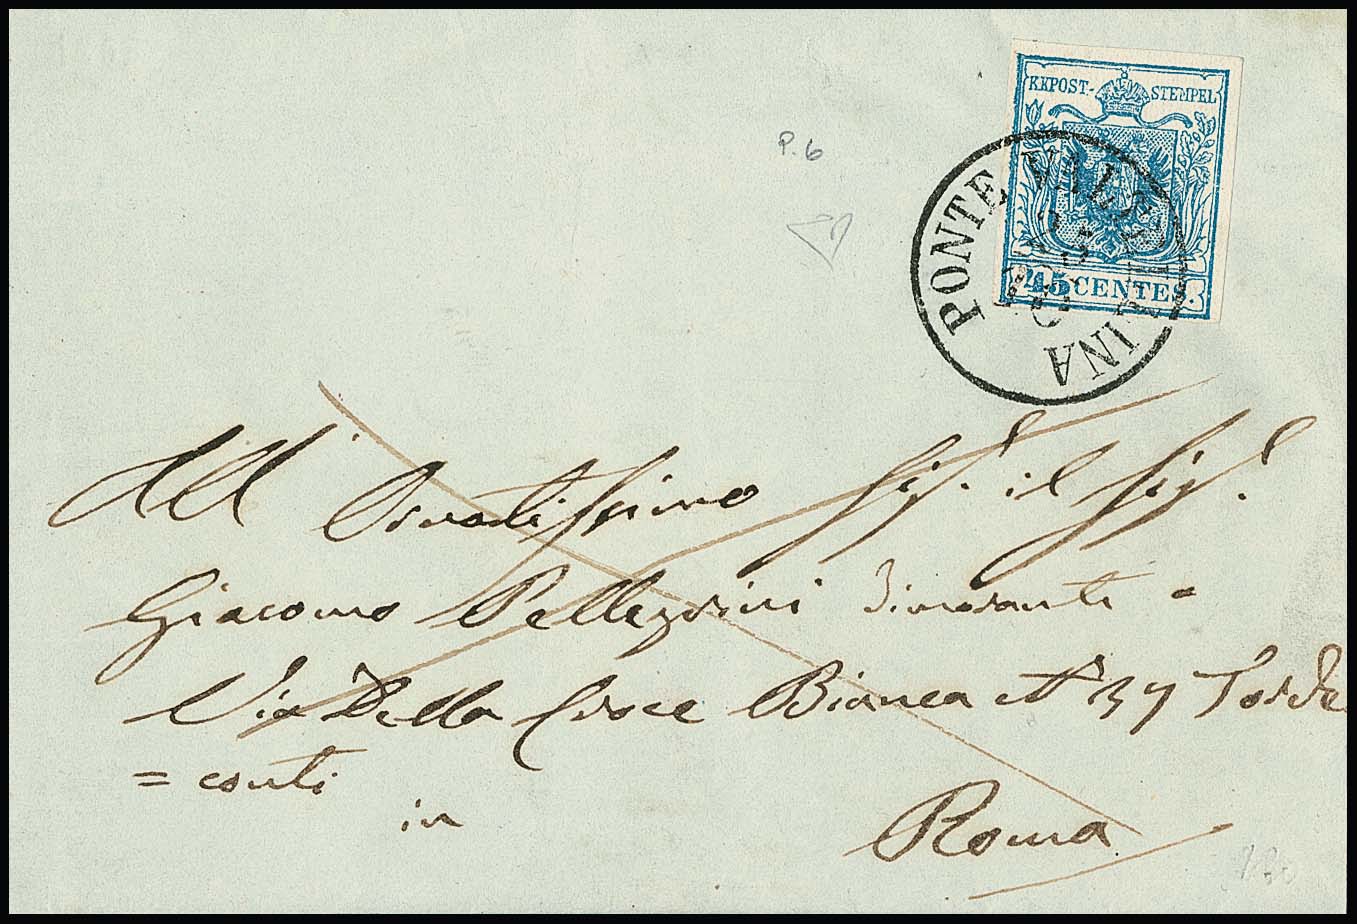 KKPOST-STEMPEL
45 CENTES.
PONTE VALTELLINA
P. 6
All' Ornatissimo Sig.r il Sig.r
Giacomo Pellegrini Dimorante =
Via Della Croce Bianca N° 39
= conti
in
Roma